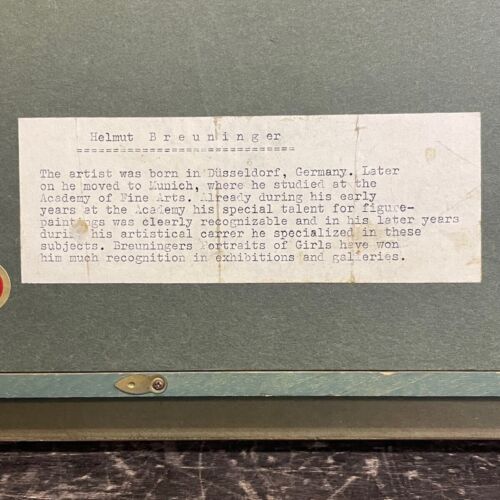 Helmut B r e u n i n g e r
============================
The artist was born in Düsseldorf, Germany. Later
on he moved to Munich, where he studied at the
Academy of Fine Arts. Already during his early
years at the Academy his special talent for figure-
paintings was clearly recognizable and in his later years
during his artistical carrer he specialized in these
subjects. Breuningers Portraits of Girls have won
him much recognition in exhibitions and galleries.